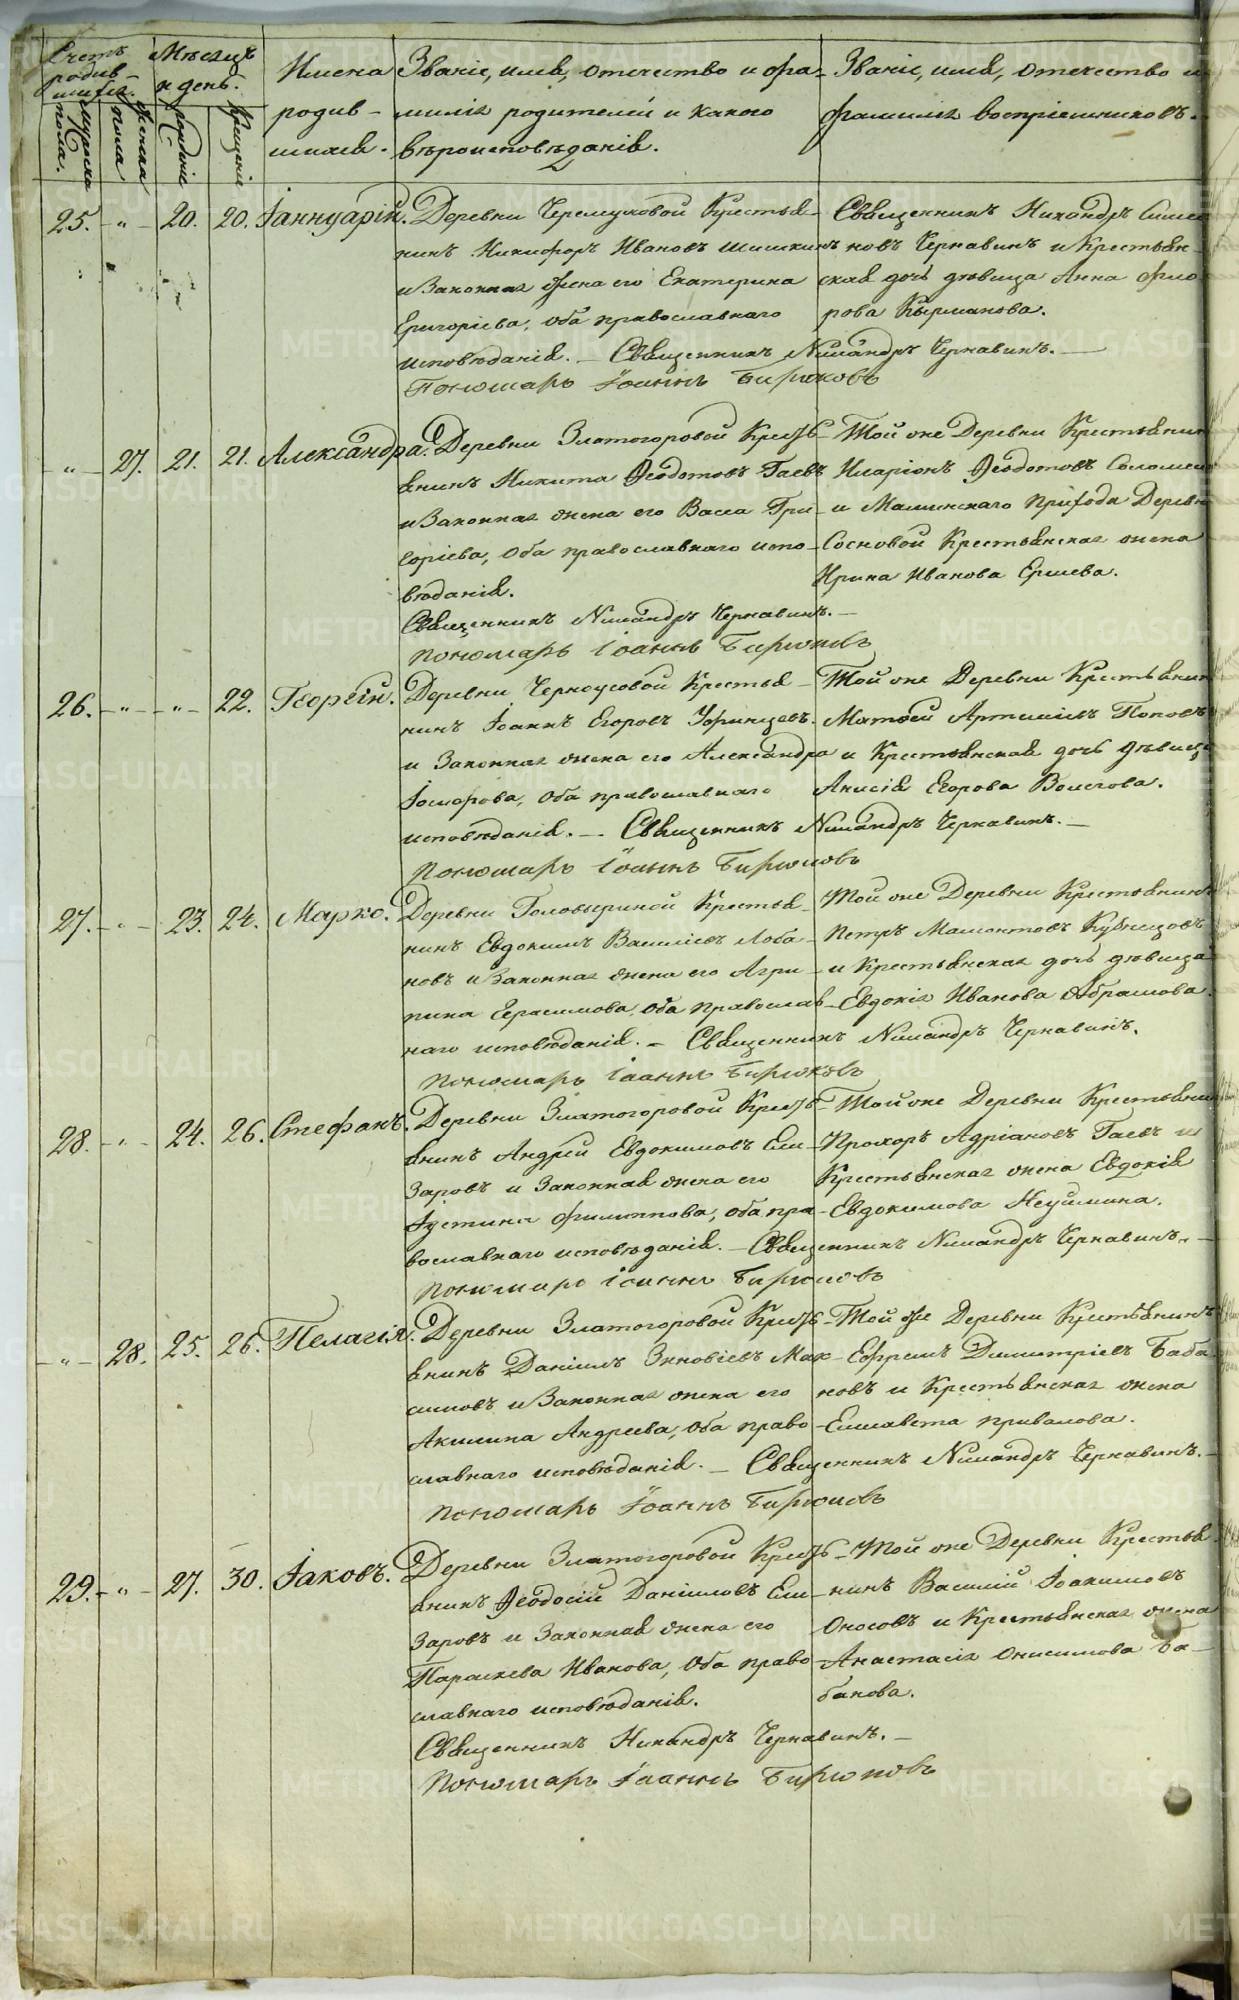 Счетъ родив-шихся.
Мѣсяцъ и день.
Имена родив-шихся.
Званіе, имя, отчество и фа-
милія родителей и какого
вѣроисповѣданія.
Званіе, имя, отчество и
фамилія воспріемниковъ.
Мужска пола.
Женска пола
рожденія
крещенія
25. - „ - 20. 20. Іаннуарій.
Деревни Черемуховой Крестья-
нинъ Никифоръ Ивановъ Шишкинъ
и Законная жена его Екатерина
Григоріева, оба православнаго
исповѣданія. — Священникъ Никандръ Чернавинъ. —
Пономарь Іоаннъ Бирюковъ
Священникъ Никандръ Симео
новъ Чернавинъ и Крестьян-
ская дочь дѣвица Анна Фло
рова Кырманова.
- „ - 27. 21. 21. Александра.
Деревни Златогоровой Кресть-
янинъ Никита Ѳеодотовъ Гаевъ
и Законная жена его Васса Гри-
горіева, оба православнаго испо-
вѣданія.
Священникъ Никандръ Чернавинъ. —
Пономарь Іоаннъ Бирюковъ
Той же Деревни Крестьянин
Иларіонъ Ѳеодотовъ Соломеин
и Маминскаго Прихода Деревн
Сосновой Крестьянская жена
Ирина Иванова Ершева.
26. - „ - „ - 22. Георгій.
Деревни Черноусовой Крестья-
нинъ Іоаннъ Егоровъ Уфинцевъ.
и Законная жена его Александра
исповѣданія. — Священникъ Никандръ Чернавинъ. —
Пономарь Іоаннъ Бирюковъ
Той же Деревни Крестьянин
Матѳей Артеміевъ Поповъ
и Крестьянская дочь дѣвица
Анисія Егорова Волегова.
27. - „ - 23. 24. Марко.
Деревни Головыриной Крестья-
нинъ Евдокимъ Василіевъ Лоба-
новъ и Законная жена его Агри-
пина Герасимова, оба православ-
наго исповѣданія. — Священникъ Никандръ Чернавинъ.
Пономарь Іоаннъ Бирюковъ
Той же Деревни Крестьянинъ
Петръ Мамонтовъ Кузнецовъ
и Крестьянская дочь дѣвица
Евдокія Иванова Абрамова.
28. - „ - 24. 26. Стефанъ.
Деревни Златогоровой Кресть-
янинъ Андрей Евдокимовъ Ели-
заровъ и Законная жена его
Іустина Филиппова, оба пра-
вославнаго исповѣданія. — Священникъ Никандръ Чернавинъ. —
Пономарь Іоаннъ Бирюковъ
Той же Деревни Крестьянин
Прохоръ Адріановъ Гаевъ и
Крестьянская жена Евдокія
Евдокимова Неуймина.
- „ - 28. 25. 26. Пелагія.
Деревни Златогоровой Кресть-
янинъ Даніилъ Зиновіевъ Мак-
симовъ и Законная жена его
Акилина Андреева, оба право-
славнаго исповѣданія. — Священникъ Никандръ Чернавинъ. —
Пономарь Іоаннъ Бирюковъ
Той же Деревни Крестьянинъ
Ефремъ Димитріевъ Баба
новъ и Крестьянская жена
Елисавета Привалова.
29. - „ - 27. 30. Іаковъ.
Деревни Златогоровой Кресть-
янинъ Ѳеодосій Даніиловъ Ели-
заровъ и Законная жена его
Параскева Иванова, оба право-
славнаго исповѣданія.
Священникъ Никандръ Чернавинъ. —
Пономарь Іоаннъ Бирюковъ
Той же Деревни Крестья-
нинъ Василій Іоакимовъ
Оносовъ и Крестьянская жена
Анастасія Онисимова Ба-
банова.
METRIKI.GASO-URAL.RU